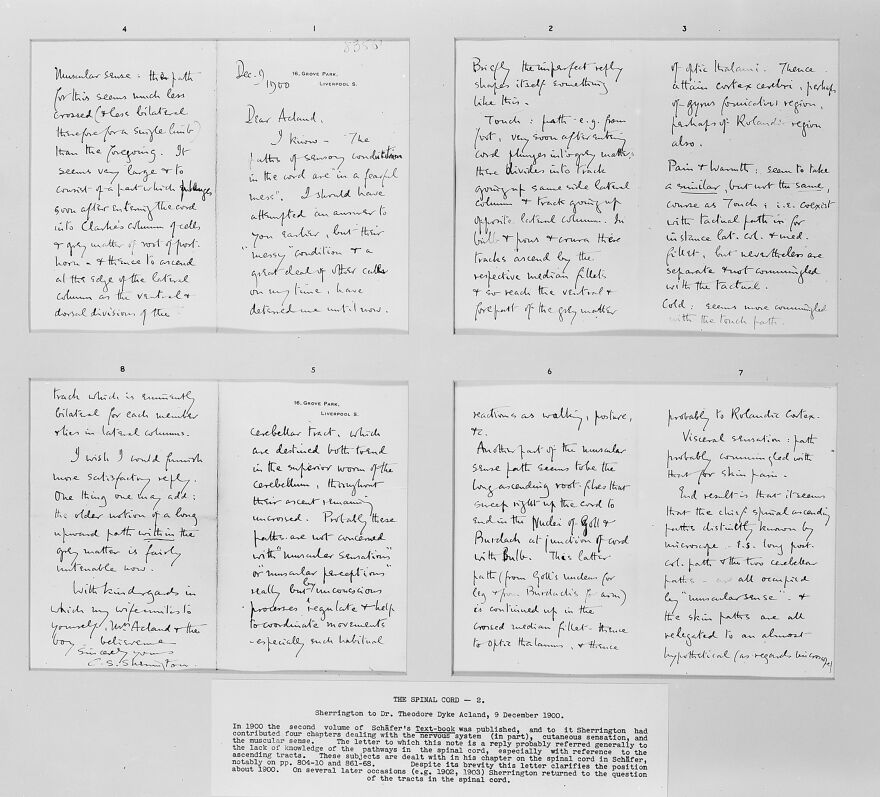 4
1
2
3
Dec. 9
1900
16, GROVE PARK,
LIVERPOOL S.
Dear Acland,
I know - The
paths of sensory conduction
in the cord are "in a fearful
mess". I should have
attempted an answer to
you earlier, but their
"messy" condition & a
great deal of other calls
on my time, have
detained me until now.
Briefly the imperfect reply
shapes itself something
like this.
Touch : path - e.g. from
foot, very soon after entering
cord plunges into grey matter
there divides into track
going up same side lateral
column & track going up
opposite lateral column. In
bulb & pons & crura these
tracks ascend by the
respective median fillets
& so reach the ventral &
forepart of the grey matter
of optic thalami. Thence
attain cortex cerebri, perhaps
of gyrus fornicatus region,
perhaps of Rolandic region
also.
Pain & Warmth : seem to take
a similar, but not the same,
course as Touch : i.e. coexist
with tactual path in for
instance lat. col. & med.
fillet, but nevertheless are
separate & not commingled
with the tactual.
Cold : seems more commingled
with the touch path.
Muscular sense : the path
for this seems much less
crossed (& less bilateral
therefore for a single limb)
than the foregoing. It
seems very large & to
consist of a part which plunges
soon after entering the cord
into Clarke's column of cells
& grey matter of root of post.
horn - & thence to ascend
at the edge of the lateral
column as the ventral &
dorsal divisions of the
8
5
6
7
16, GROVE PARK,
LIVERPOOL S.
cerebellar tract, which
are destined both to end
in the superior worm of the
cerebellum, throughout
their ascent remaining
uncrossed. Probably these
paths are not concerned
with "muscular sensations"
or "muscular perceptions"
really but by unconscious
processes regulate & help
to coordinate movements
- especially such habitual
reactions as walking, posture,
&c.
Another part of the muscular
sense path seems to be the
long ascending root-fibres that
sweep right up the cord to
end in the Nuclei of Goll &
Burdach at junction of cord
with Bulb. This latter
path (from Goll's nucleus for
leg & from Burdach's for arm)
is continued up in the
crossed median fillet - thence
to optic thalamus, & thence
probably to Rolandic Cortex.
Visceral sensation : path
probably commingled with
that for skin pain.
End result is that it seems
that the chief spinal ascending
paths distinctly known by
microscope - i.e. long post.
col. path & the two cerebellar
paths - are all occupied
by "muscular sense". &
the skin paths are all
relegated to an almost
hypothetical (as regards microscope)
track which is eminently
bilateral for each member
& lies in lateral columns.
I wish I could furnish
more satisfactory reply.
One thing one may add :
the older notion of a long
upward path within the
grey matter is fairly
untenable now.
With kind regards in
which my wife unites to
yourself, Mrs Acland & the
boy, believe me
Sincerely yours
C. S. Sherrington.
THE SPINAL CORD — 2.
Sherrington to Dr. Theodore Dyke Acland, 9 December 1900.
In 1900 the second volume of Schäfer's Text-book was published, and to it Sherrington had
contributed four chapters dealing with the nervous system (in part), cutaneous sensation, and
the muscular sense. The letter to which this note is a reply probably referred generally to
the lack of knowledge of the pathways in the spinal cord, especially with reference to the
ascending tracts. These subjects are dealt with in his chapter on the spinal cord in Schäfer,
notably on pp. 804-10 and 861-68. Despite its brevity this letter clarifies the position
about 1900. On several later occasions (e.g. 1902, 1903) Sherrington returned to the question
of the tracts in the spinal cord.